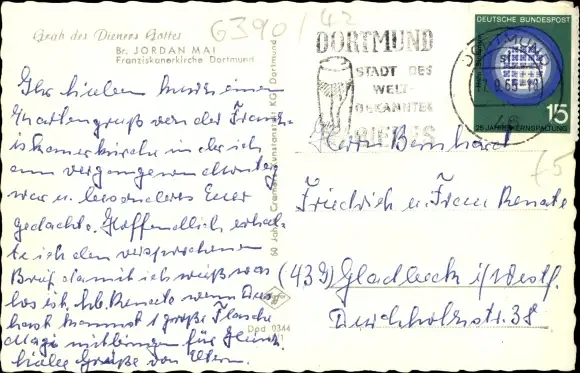 6390/42
Grab des Dieners Gottes
Br. JORDAN MAI
Franziskanerkirche Dortmund
Ihr Lieben
Kartengruß von der Franz-
iskanerkirche in der ich
am vergangenen
war u. besonders Euer
gedachte. Hoffendlich erhal-
te ich den versprochenen
Brief damit ich weiß was
los ist. Lb. Renate wenn Du
kommst 1 große Flasche
Magi mitbringen für
Grüße von Eltern.
60 Jahre Cramers Kunstanstalt KG, Dortmund
Dpd 0344
DORTMUND
STADT DES
WELT-
BEKANNTEN
BIERES
DORTMUND
7.9.65
DEUTSCHE BUNDESPOST
15
25 JAHRE KERNSPALTUNG
Herrn Bernhard
Friedrich u. Frau Renate
(439) Gladbeck i/Westf.
Buchholzstr. 38